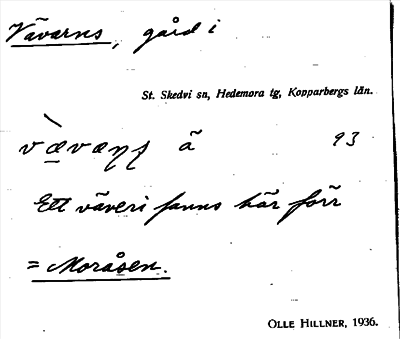 Vävarns, gård i
St. Skedvi sn, Hedemora tg, Kopparbergs län.
ä 93
Ett väveri fanns här förr
= Moråsen.
OLLE HILLNER, 1936.